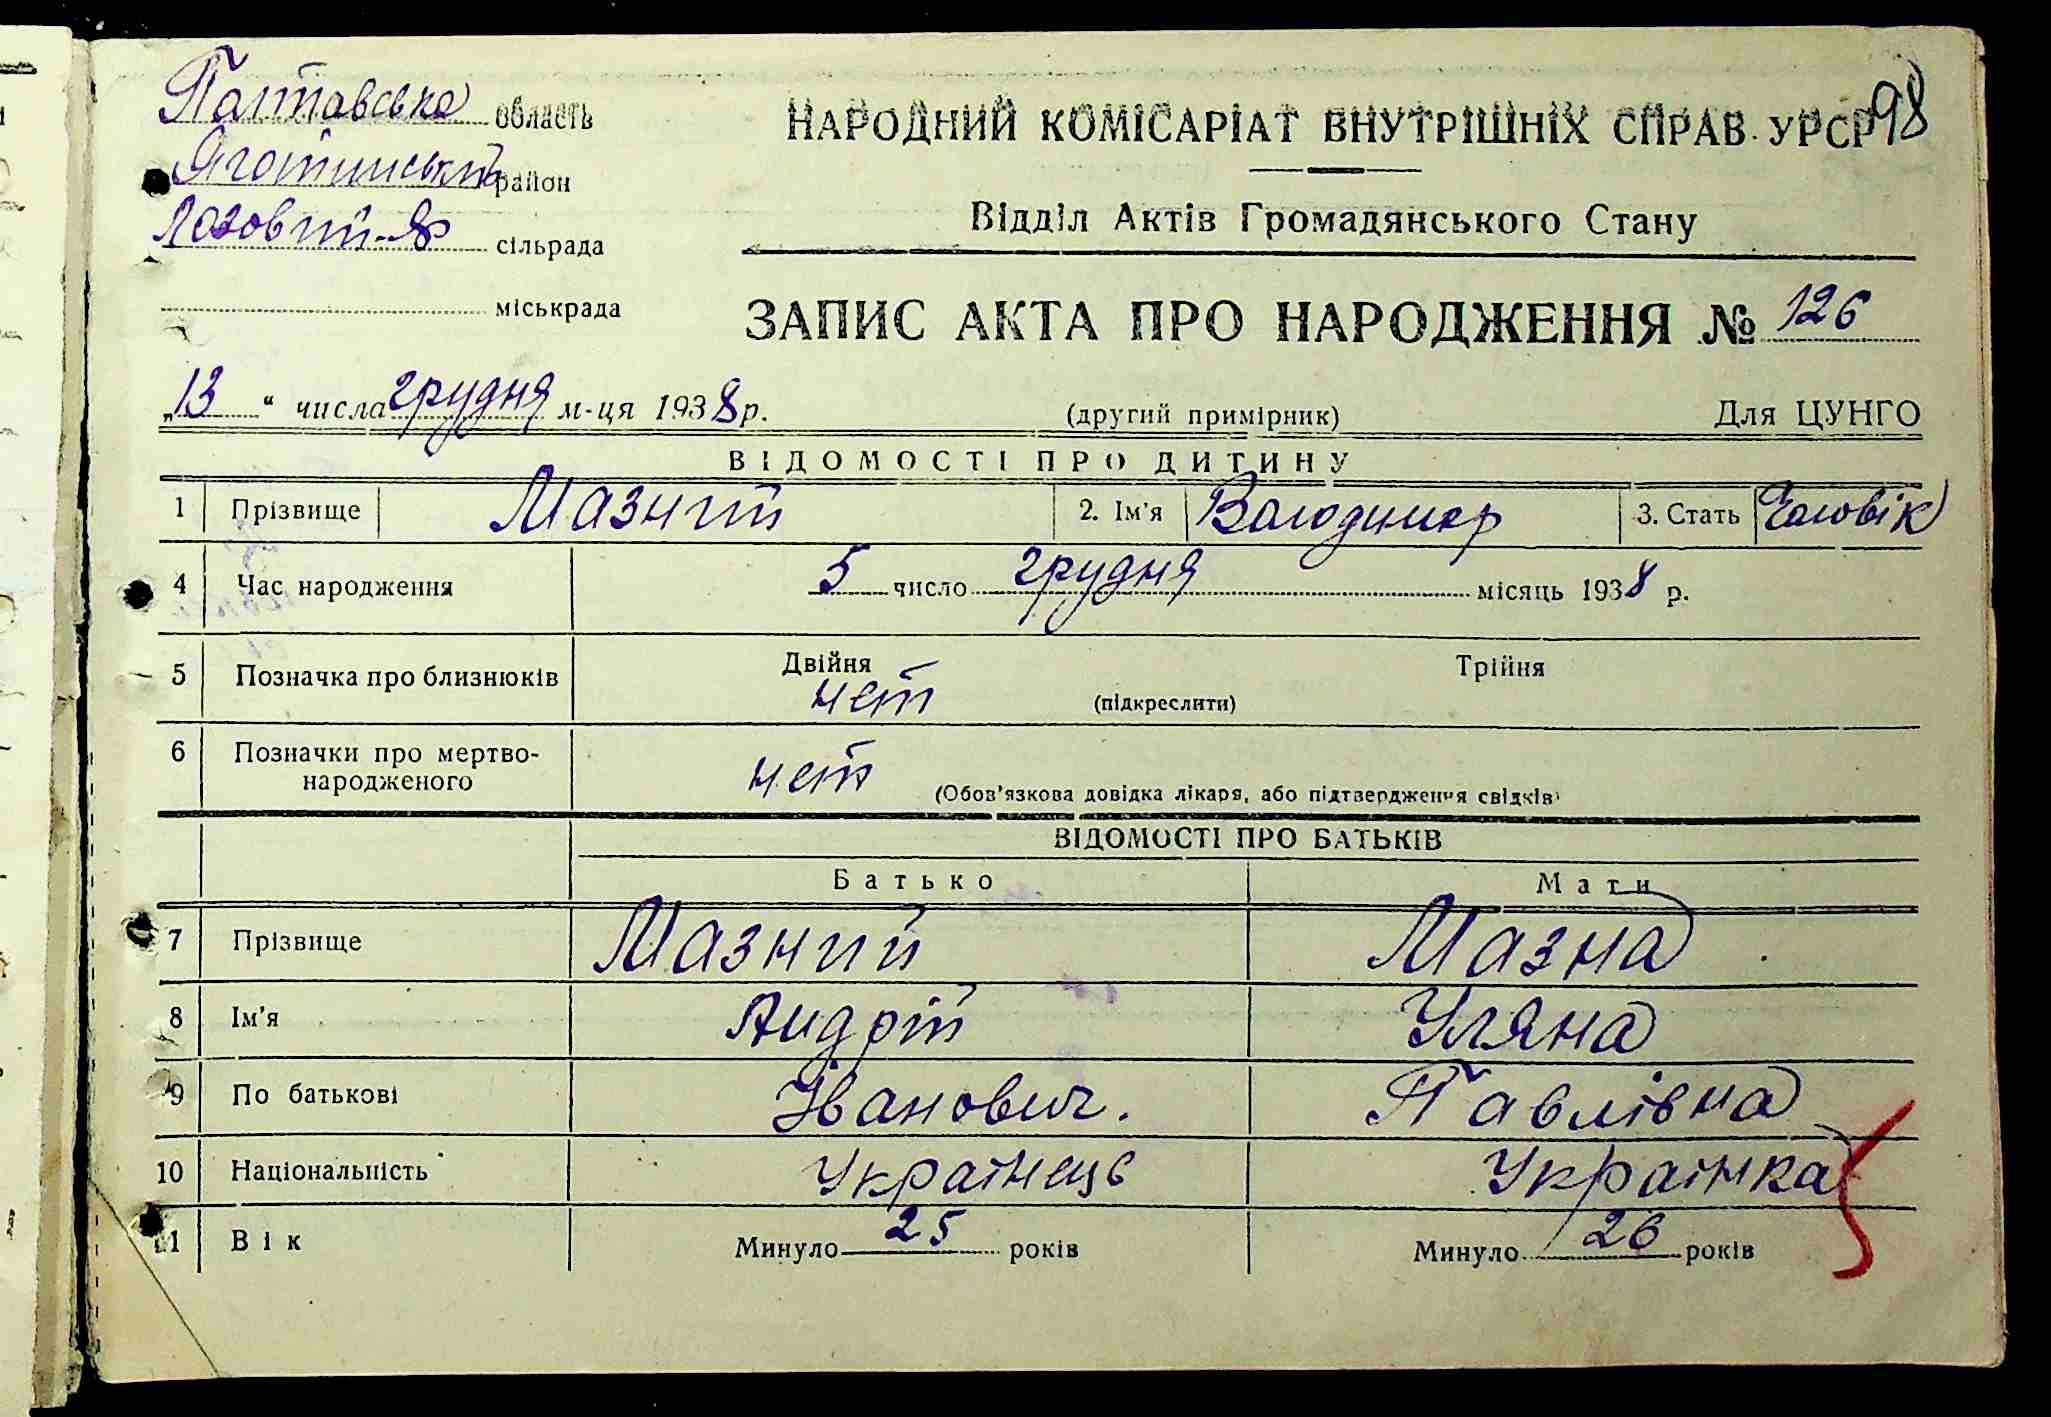 Полтавська область
Яготинський район
Лозовий-Яр сільрада
міськрада
НАРОДНИЙ КОМІСАРІАТ ВНУТРІШНІХ СПРАВ УРСР 98
Відділ Актів Громадянського Стану
ЗАПИС АКТА ПРО НАРОДЖЕННЯ № 126
„13“ числа грудня м-ця 1938 р. (другий примірник) Для ЦУНГО
ВІДОМОСТІ ПРО ДИТИНУ
1 Прізвище Мазний 2. Ім'я Володимер 3. Стать Чоловік
4 Час народження 5 число грудня місяць 1938 р.
5 Позначка про близнюків Двійня Трійня
нет (підкреслити)
6 Позначки про мертво-
народженого нет (Обов'язкова довідка лікаря, або підтвердження свідків)
ВІДОМОСТІ ПРО БАТЬКІВ
Батько Мати
7 Прізвище Мазний Мазна
8 Ім'я Андрій Уляна
9 По батькові Іванович. Павлівна
10 Національність Українець Українка
11 Вік Минуло 25 років Минуло 26 років